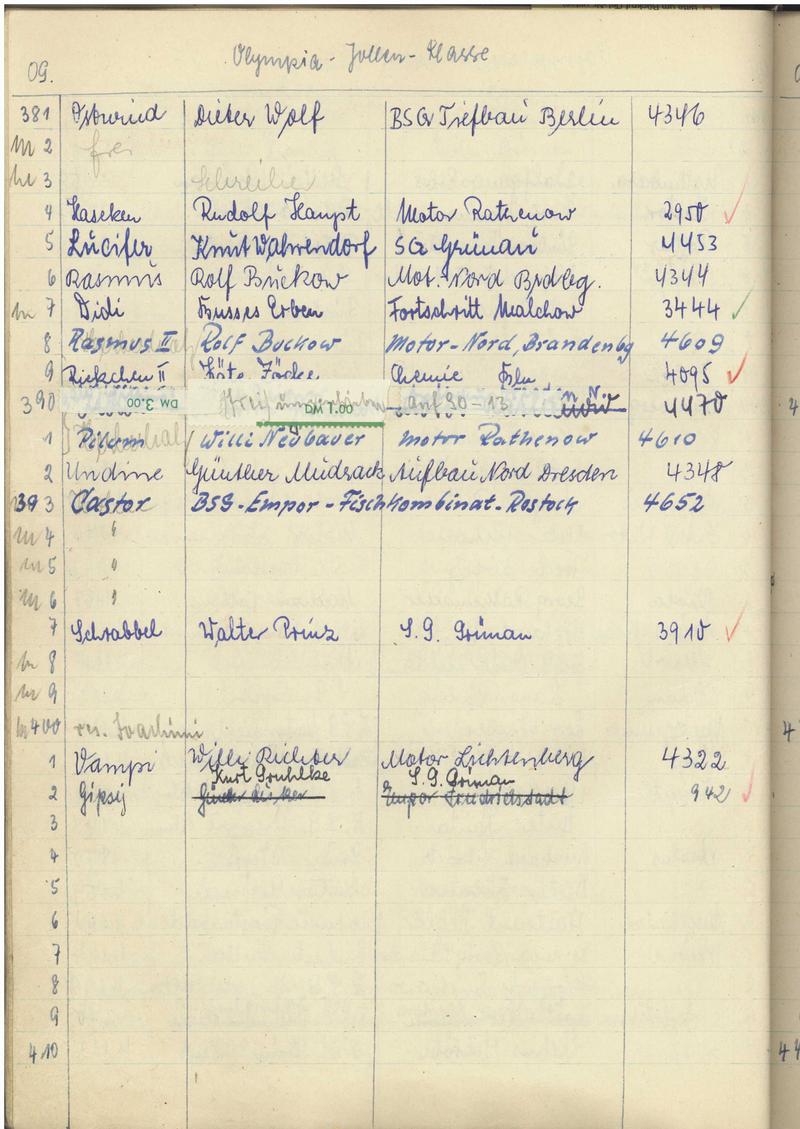 Olympia-Jollen-Klasse
09.
381 Ostwind Dieter Wolf BSG Tiefbau Berlin 4346
m 2 frei
m 3 Schreiber
4 Rudolf Haupt Motor Rathenow 2950 ✓
5 Lucifer Knut Wahrendorf SG Grünau 4453
6 Rasmus Rolf Buckow Mot. Nord Brdbg. 4344
m 7 Didi Busses Erben Fortschritt Malchow 3444 ✓
8 Rasmus II Rolf Buckow Motor-Nord, Brandenbg 4609
9 Riekchen II Käte Chemie 4095 ✓
390 DM 3.00 DM 1.00 auf 30 = 13 4470
1 Pilum Willi Neubauer Motor Rathenow 4610
2 Undine Günther Mudrack Aufbau Nord Dresden 4348
393 Castor BSG-Empor-Fischkombinat-Rostock 4652
m 4 "
m 5 "
m 6 "
7 Schrabbel Walter Prinz S.G. Grünau 3910 ✓
m 8
m 9
m 400 res. Joachimi
1 Vampi Willi Richter Motor Lichtenberg 4322
Kurt Gruhlke S.G. Grünau
2 Gipsy Empor Friedrichstadt 942 ✓
3
4
5
6
7
8
9
410